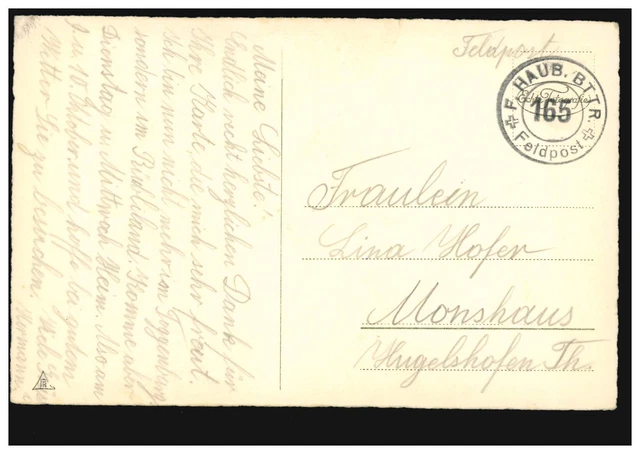 Meine Liebste!
Endlich recht herzlichen Dank für
Ihre Karte, die mich sehr freut.
Ich bin nun nicht mehr im Toggenburg
sondern im Kommme aber
Dienstag u. Mittwoch Heim. Also am
9. u. 10. Oktober und hoffe bei gutem
Wetter Sie zu besuchen.
Hermann
Feldpost
F. HAUB. BTTR.
165
Feldpost
Fräulein
Lina Hofer
Monshaus
Hugelshofen Th.